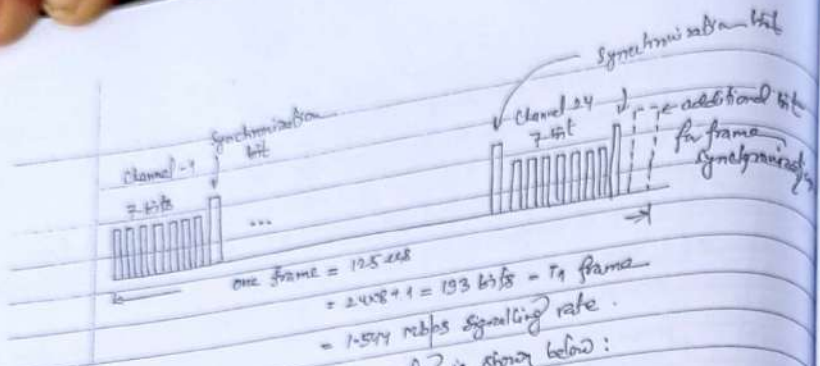 Synchronization bit
Channel-1
7-bits
Synchronization
bit
...
Channel 24
7-bit
additional bit
for frame
Synchronization
one frame = 125 us
= 24x8+1 = 193 bits - T1 frame
= 1.544 mbps signalling rate.
is shown below: